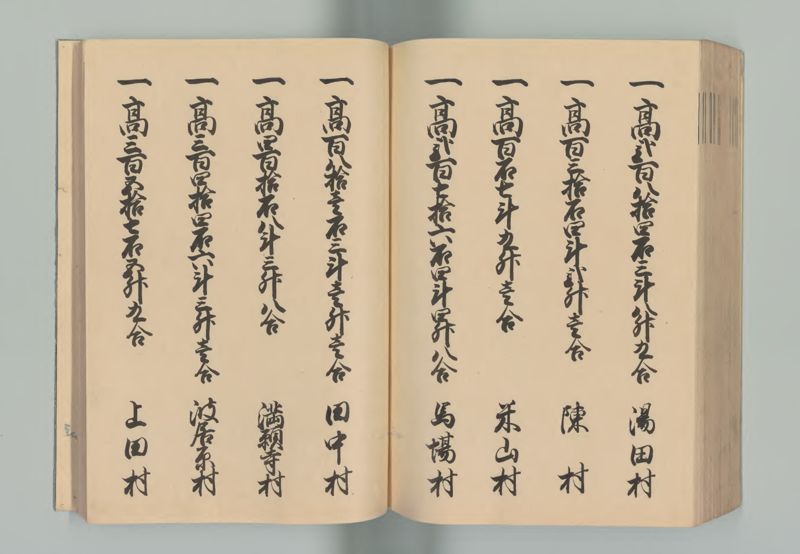 一高弐百八拾四石三斗八升九合 湯田村
一高百三拾石四斗弐升壱合 陳村
一高百石七斗九升壱合 米山村
一高弐百七拾六石四斗四升八合 馬場村
一高百八拾壱石三斗壱升壱合 田中村
一高四百拾石八斗三升八合 満願寺村
一高三百四拾四石六斗三升壱合 波居原村
一高三百五拾七石五升九合 上田村